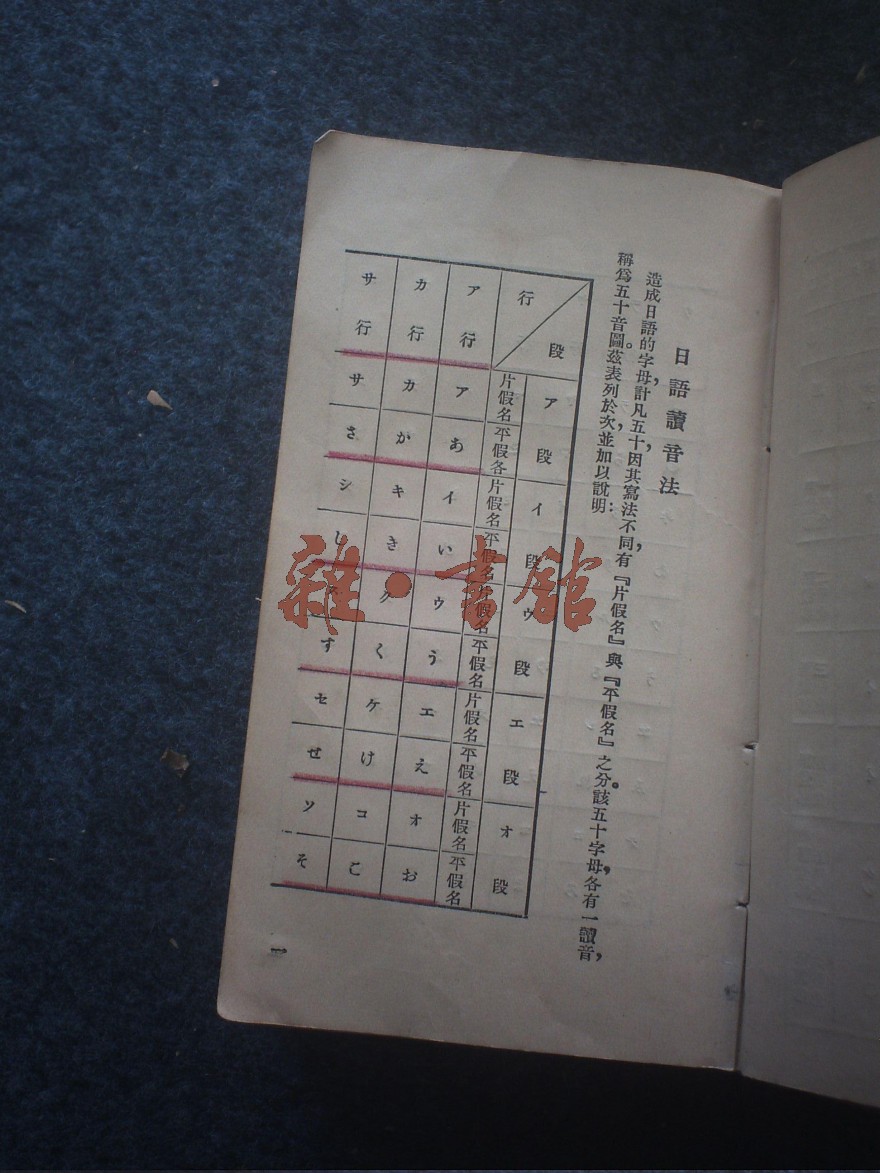 日語讀音法
造成日語的字母，計凡五十，因其寫法不同，有『片假名』與『平假名』之分。該五十字母，各有一讀音，
稱爲五十音圖。茲表列於次，並加以說明：
行 段 ア段 イ段 ウ段 エ段 オ段
片假名 平假各 片假名 平假名 片假名 平假名 片假名 平假名 片假名 平假名
ア行 ア あ イ い ウ う エ え オ お
カ行 カ か キ き ク く ケ け コ こ
サ行 サ さ シ し ス す セ せ ソ そ
一
雜·書館